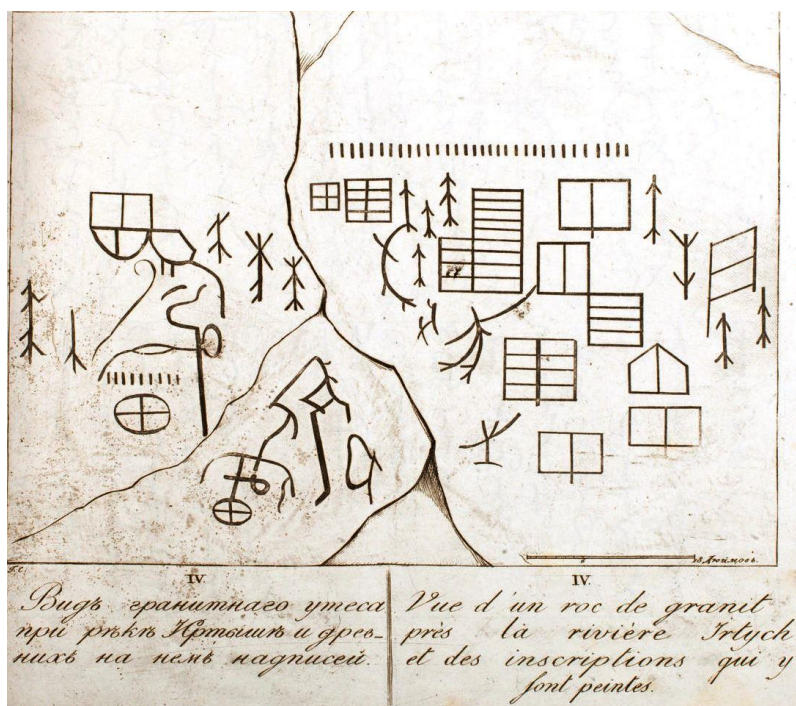 Дюймовъ.
IV.
Видъ гранитнаго утеса
при рѣкѣ Иртышѣ и древ-
нихъ на немъ надписей.
IV.
Vue d'un roc de granit
près la rivière Irtych
et des inscriptions qui y
sont peintes.